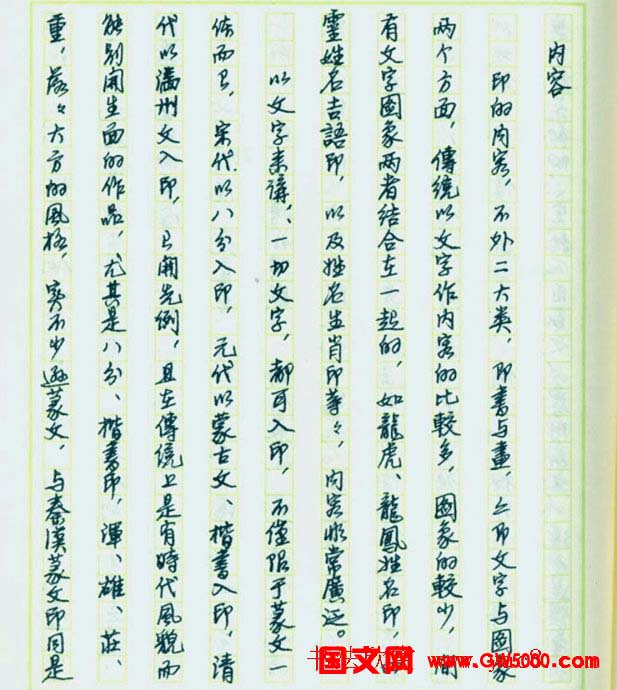 内容
印的内容，不外二大类，即書与畫，亦即文字与圖象
两个方面，傳統以文字作内容的比較多，圖象的較少，间
有文字圖象两者结合在一起的，如龍虎、龍鳳姓名印，四
霊姓名吉語印，以及姓名生肖印等々，内容非常廣泛。
以文字来講，一切文字，都可入印，不僅限于篆文一
体而已，宋代以八分入印，元代以蒙古文、楷書入印，清
代以滿州文入印，已開先例，且在傳統上是有時代風貌而
能别開生面的作品，尤其是八分、楷書印，渾、雄、莊、
重，落々大方的風格，實不少遜篆文，与秦漢篆文印同是
国文网 www.GW5000.com